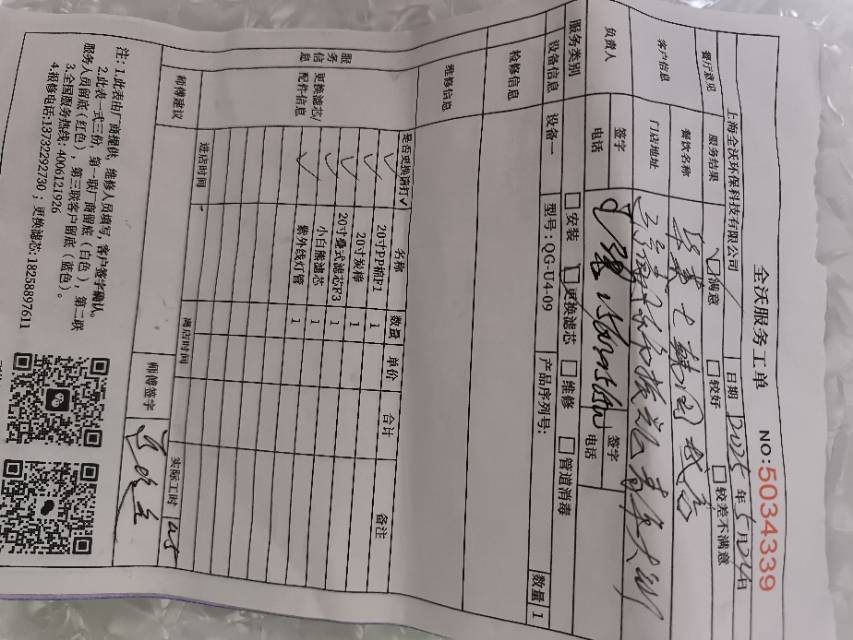 全沃服务工单 NO:5034339
上海全沃环保科技有限公司 日期 2025年5月24日
餐厅意见 服务结果 ☑满意 □较好 □较差不满意
客户信息 餐饮名称
门店地址
负责人 签字 签字
电话 电话
服务类别 □安装 □更换滤芯 □维修 □管道消毒
设备信息 设备一 型号:QG-U4-09 产品序列号: 数量 1
检修信息
维修信息
服务信息 更换滤芯/配件信息
是否更换请打✓ 名称 数量 单价 合计 备注
✓ 20寸PP棉F1 1
✓ 20寸炭棒 1
✓ 20寸叠式滤芯F3 1
✓ 小白熊滤芯 1
✓ 紫外线灯管 1
进店时间 离店时间 实际工时
师傅建议 师傅签字
注:1.此表由厂商提供,维修人员填写,客户签字确认。
2.此表一式三份,第一联厂商留底(白色),第二联
服务人员留底(红色),第三联客户留底(蓝色)。
3.全国服务热线:4006121926
4.报修电话:13732292730;更换滤芯:18258897611